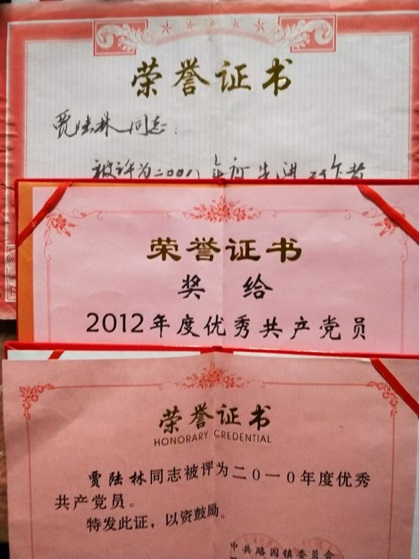 荣誉证书
贾陆林同志:
被评为二〇〇八年度先进工作者
荣誉证书
奖给
2012年度优秀共产党员
荣誉证书
HONORARY CREDENTIAL
贾陆林同志被评为二〇一〇年度优秀
共产党员。
特发此证，以资鼓励。
中共路园镇委员会